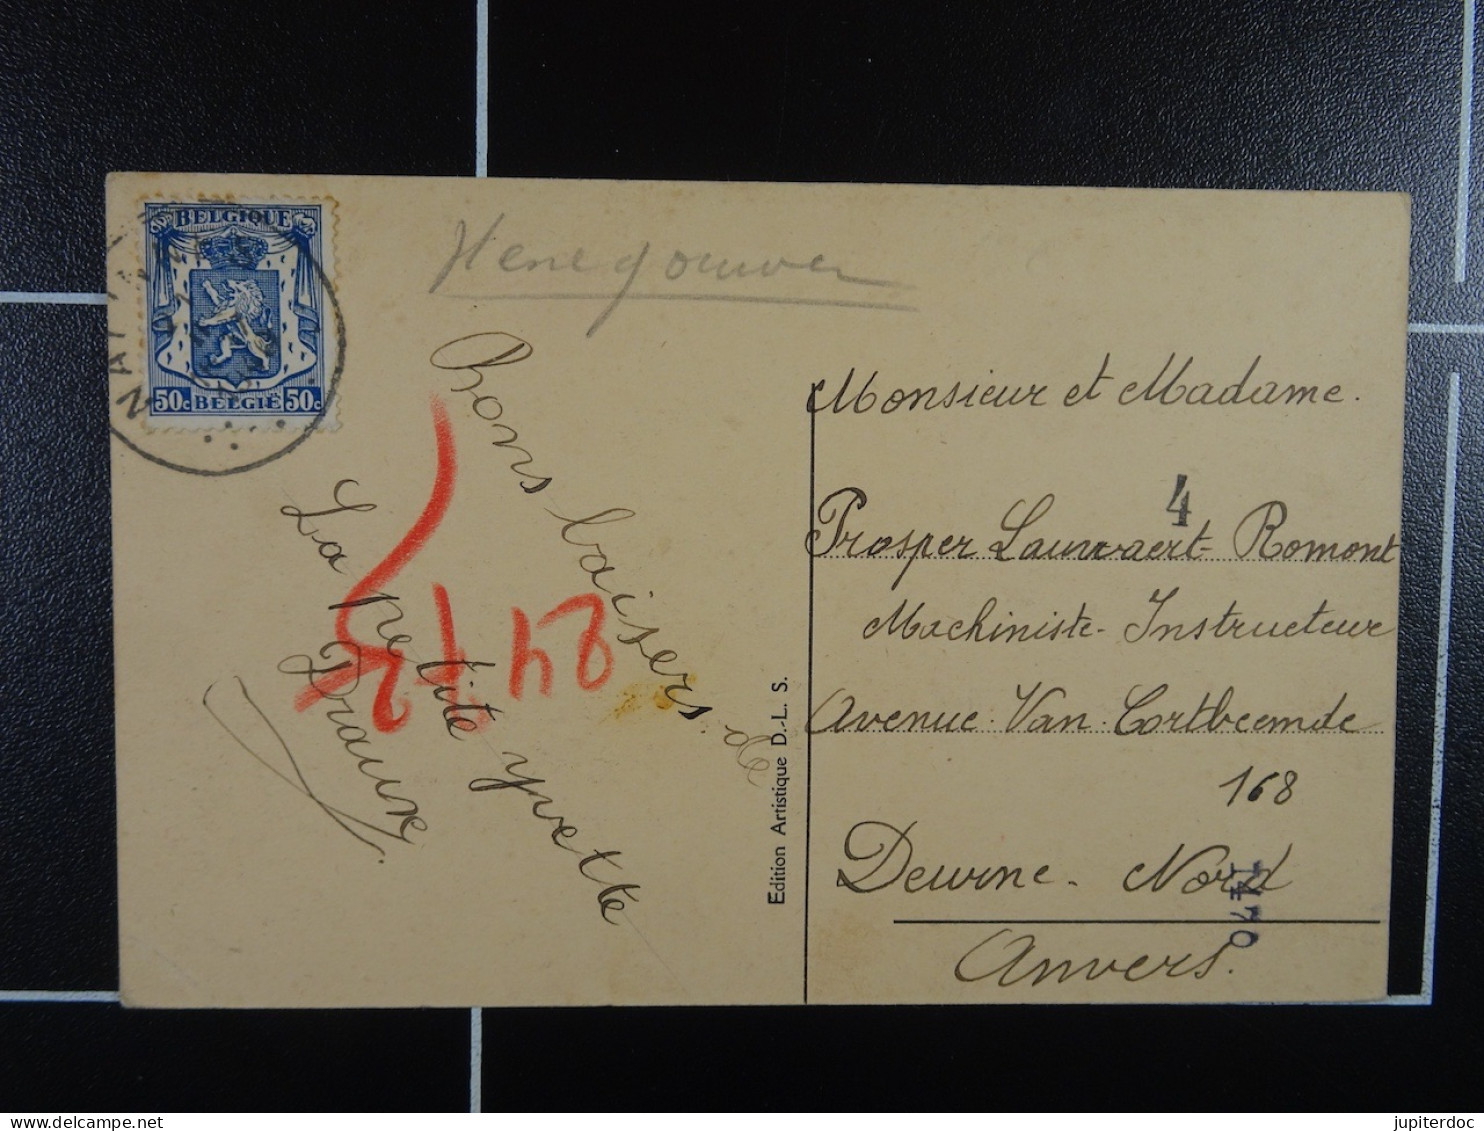 BELGIQUE
50c BELGIË 50c
Henegouwen
Bons baisers de
La petite Yvette
Draux
Edition Artistique D.-L. S.
Monsieur et Madame.
4
Prosper Lauwaert-Romont
Machiniste-Instructeur
Avenue Van Cortbeemde
168
Deurne-Nord
Anvers.
jupiterdoc